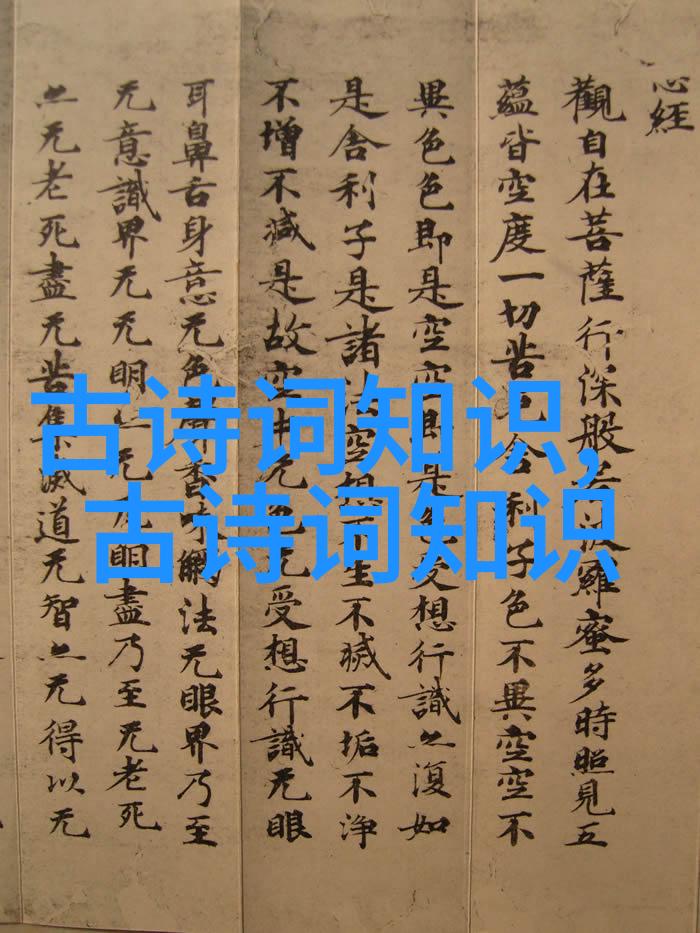 心經
觀自在菩薩行深般若波羅蜜多時照見五
蘊皆空度一切苦厄舍利子色不異空空不
異色色即是空空即是色受想行識亦復如
是舍利子是諸法空想不生不滅不垢不淨
不增不減是故空中无色无受想行識无眼
耳鼻舌身意无色聲香味觸法无眼界乃至
无意識界无无明亦无无明盡乃至无老死
亦无老死盡无苦集滅道无智亦无得以无
古诗词知识,
古诗词知识